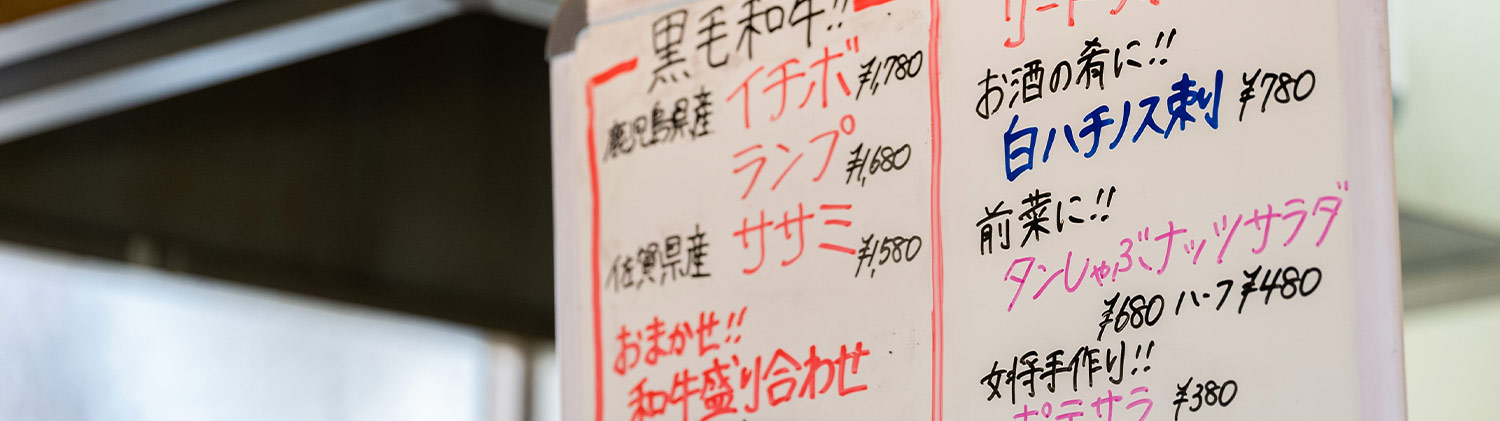 黒毛和牛!!
鹿児島県産 イチボ ¥1,780
ランプ ¥1,680
佐賀県産 ササミ ¥1,580
おまかせ!!
和牛盛り合わせ
お酒の肴に!!
白ハチノス刺り ¥780
前菜に!!
タンしゃぶナッツサラダ
¥680 ハーフ ¥480
女将手作り!!
ポテサラ ¥380